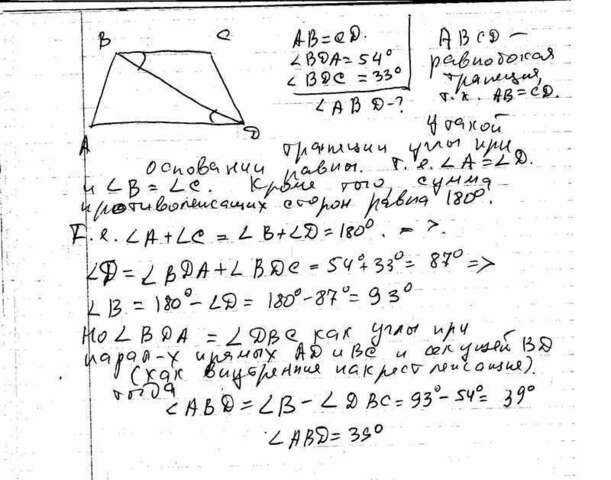 B C
A D
AB=CD.
∠BDA=54°
∠BDC=33°
∠ABD-?
ABCD-
равнобокая
трапеция,
т.к. AB=CD.
У такой
трапеции углы при
основании равны. т.е. ∠A=∠D.
и ∠B=∠C. Кроме того, сумма
противолежащих сторон равна 180°.
Т.е. ∠A+∠C=∠B+∠D=180°. =>.
∠D=∠BDA+∠BDC=54°+33°=87° =>
∠B=180°-∠D=180°-87°=93°
Но ∠BDA=∠DBC как углы при
парал-х прямых AD и BC и секущей BD
(как внутренние накрест лежащие).
тогда
∠ABD=∠B-∠DBC=93°-54°=39°
∠ABD=39°